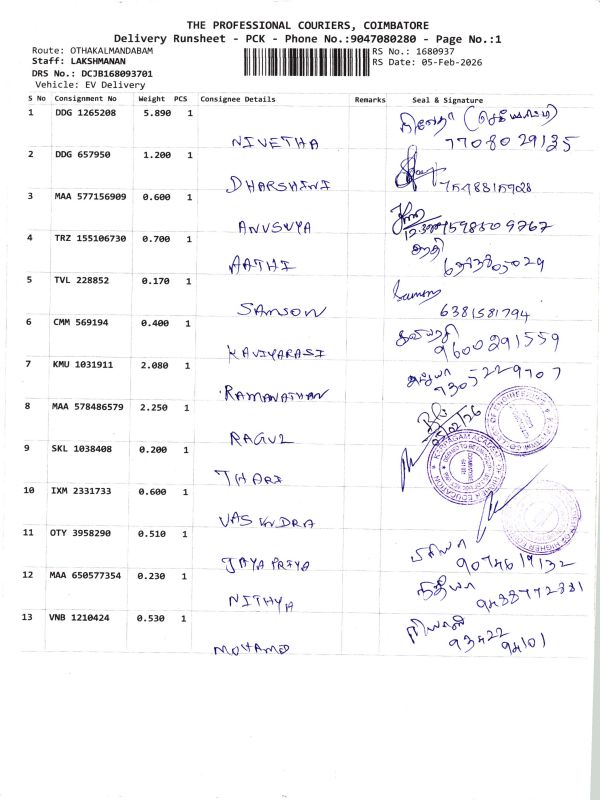 THE PROFESSIONAL COURIERS, COIMBATORE
Delivery Runsheet - PCK - Phone No.:9047080280 - Page No.:1
Route: OTHAKALMANDABAM
RS No.: 1680937
Staff: LAKSHMANAN
RS Date: 05-Feb-2026
DRS No.: DCJB168093701
Vehicle: EV Delivery
S No Consignment No Weight PCS Consignee Details Remarks Seal & Signature
1 DDG 1265208 5.890 1
NIVETHA 7708029135
2 DDG 657950 1.200 1
DHARSHINI
3 MAA 577156909 0.600 1
ANUSUYA
4 TRZ 155106730 0.700 1 ஆர்தி
AATHI
5 TVL 228852 0.170 1
SAMSON 6381581794
6 CMM 569194 0.400 1 கவியரசி
KAVIYARASI 9600291559
7 KMU 1031911 2.080 1
RAMANATHAN 7305229707
8 MAA 578486579 2.250 1 05/02/26
RAGUL
9 SKL 1038408 0.200 1
THARI
10 IXM 2331733 0.600 1
VASUNDRA
11 OTY 3958290 0.510 1 பிரியா
JAYAPRIYA 9074619132
12 MAA 650577354 0.230 1 நித்யா
NITHYA 9488772381
13 VNB 1210424 0.530 1
MOHAMED 93422 94101